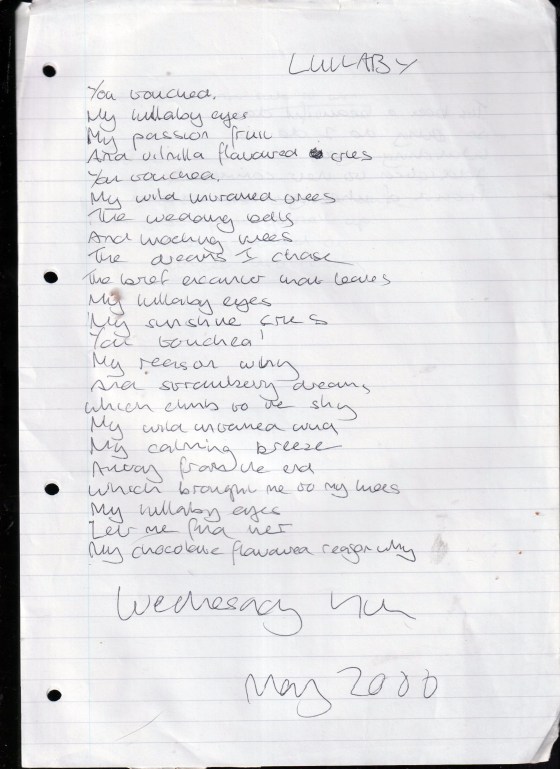 LULLABY
You touched,
My lullaby eyes
My passion fruit
And vilnilla flavoured cries
You touched,
My wild untamed trees
The wedding bells
And knees
The dreams I chase
The brief encounter that leaves
My lullaby eyes
My sunshine cries
You touched!
My reason why
And strawberry dreams
Which climb to the sky
My wild untamed wind
My calming breeze
Away from the end
Which brought me to my knees
My lullaby eyes
Let me find her
My chocolate flavoured reason why
Wednesday
May 2000